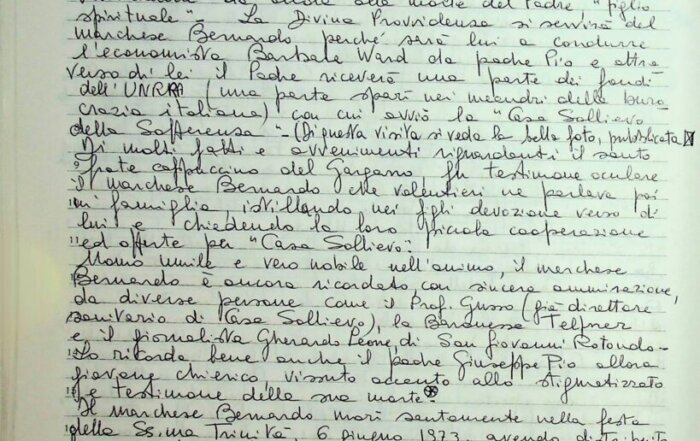 alla morte del Padre "figlio
spirituale" - La Divina Provvidenza si servirà del
marchese Bernardo perché sarà lui a condurre
l'economista Barbara Ward da padre Pio e attra
verso di lei il Padre riceverà una parte dei fondi
dell'UNRRA (una parte sparì nei meandri della buro
crazia italiana) con cui avviò la "Casa Sollievo
della Sofferenza" - (Di questa visita si veda la bella foto, pubblicata
Di molti fatti e avvenimenti riguardanti il santo
frate cappuccino del Gargano, fu testimone oculare
il marchese Bernardo che volentieri ne parlava poi
in famiglia, istillando nei figli devozione verso di
lui e chiedendo la loro piccola cooperazione
ed offerte per "Casa Sollievo".
Uomo umile e vero nobile nell'animo, il marchese
Bernardo è ancora ricordato, con sincera ammirazione,
da diverse persone come il Prof. Gusso (già direttore
sanitario di Casa Sollievo), la Baronessa Telfner
e il giornalista Gherardo Leone, di San Giovanni Rotondo -
Lo ricorda bene anche il padre Giuseppe Pio allora
giovane chierico, vissuto accanto allo stigmatizzato
e testimone della sua morte
Il marchese Bernardo morì santamente nella festa
della SS.ma Trinità, 6 giugno 1973, avendo